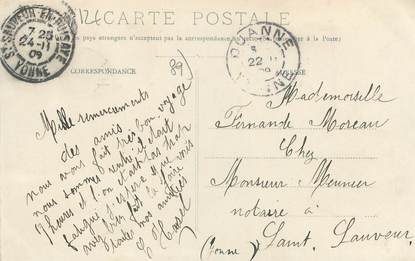 CARTE POSTALE
pays étrangers n'acceptent pas la correspondance
à la Poste)
CORRESPONDANCE
ST SAUVEUR-EN-PUISAYE
7 25
24-11
09
YONNE
22
89
Mille remerciements
des amis
nous avons fait très bon voyage
nous sommes
heures et l'on était pas trop
fatigué j'espère que
avez bien fait la foire
toutes nos amitiés
Mademoiselle
Fernande Moreau
Chez
Monsieur Meunier
notaire à
Saint Sauveur
(Yonne)